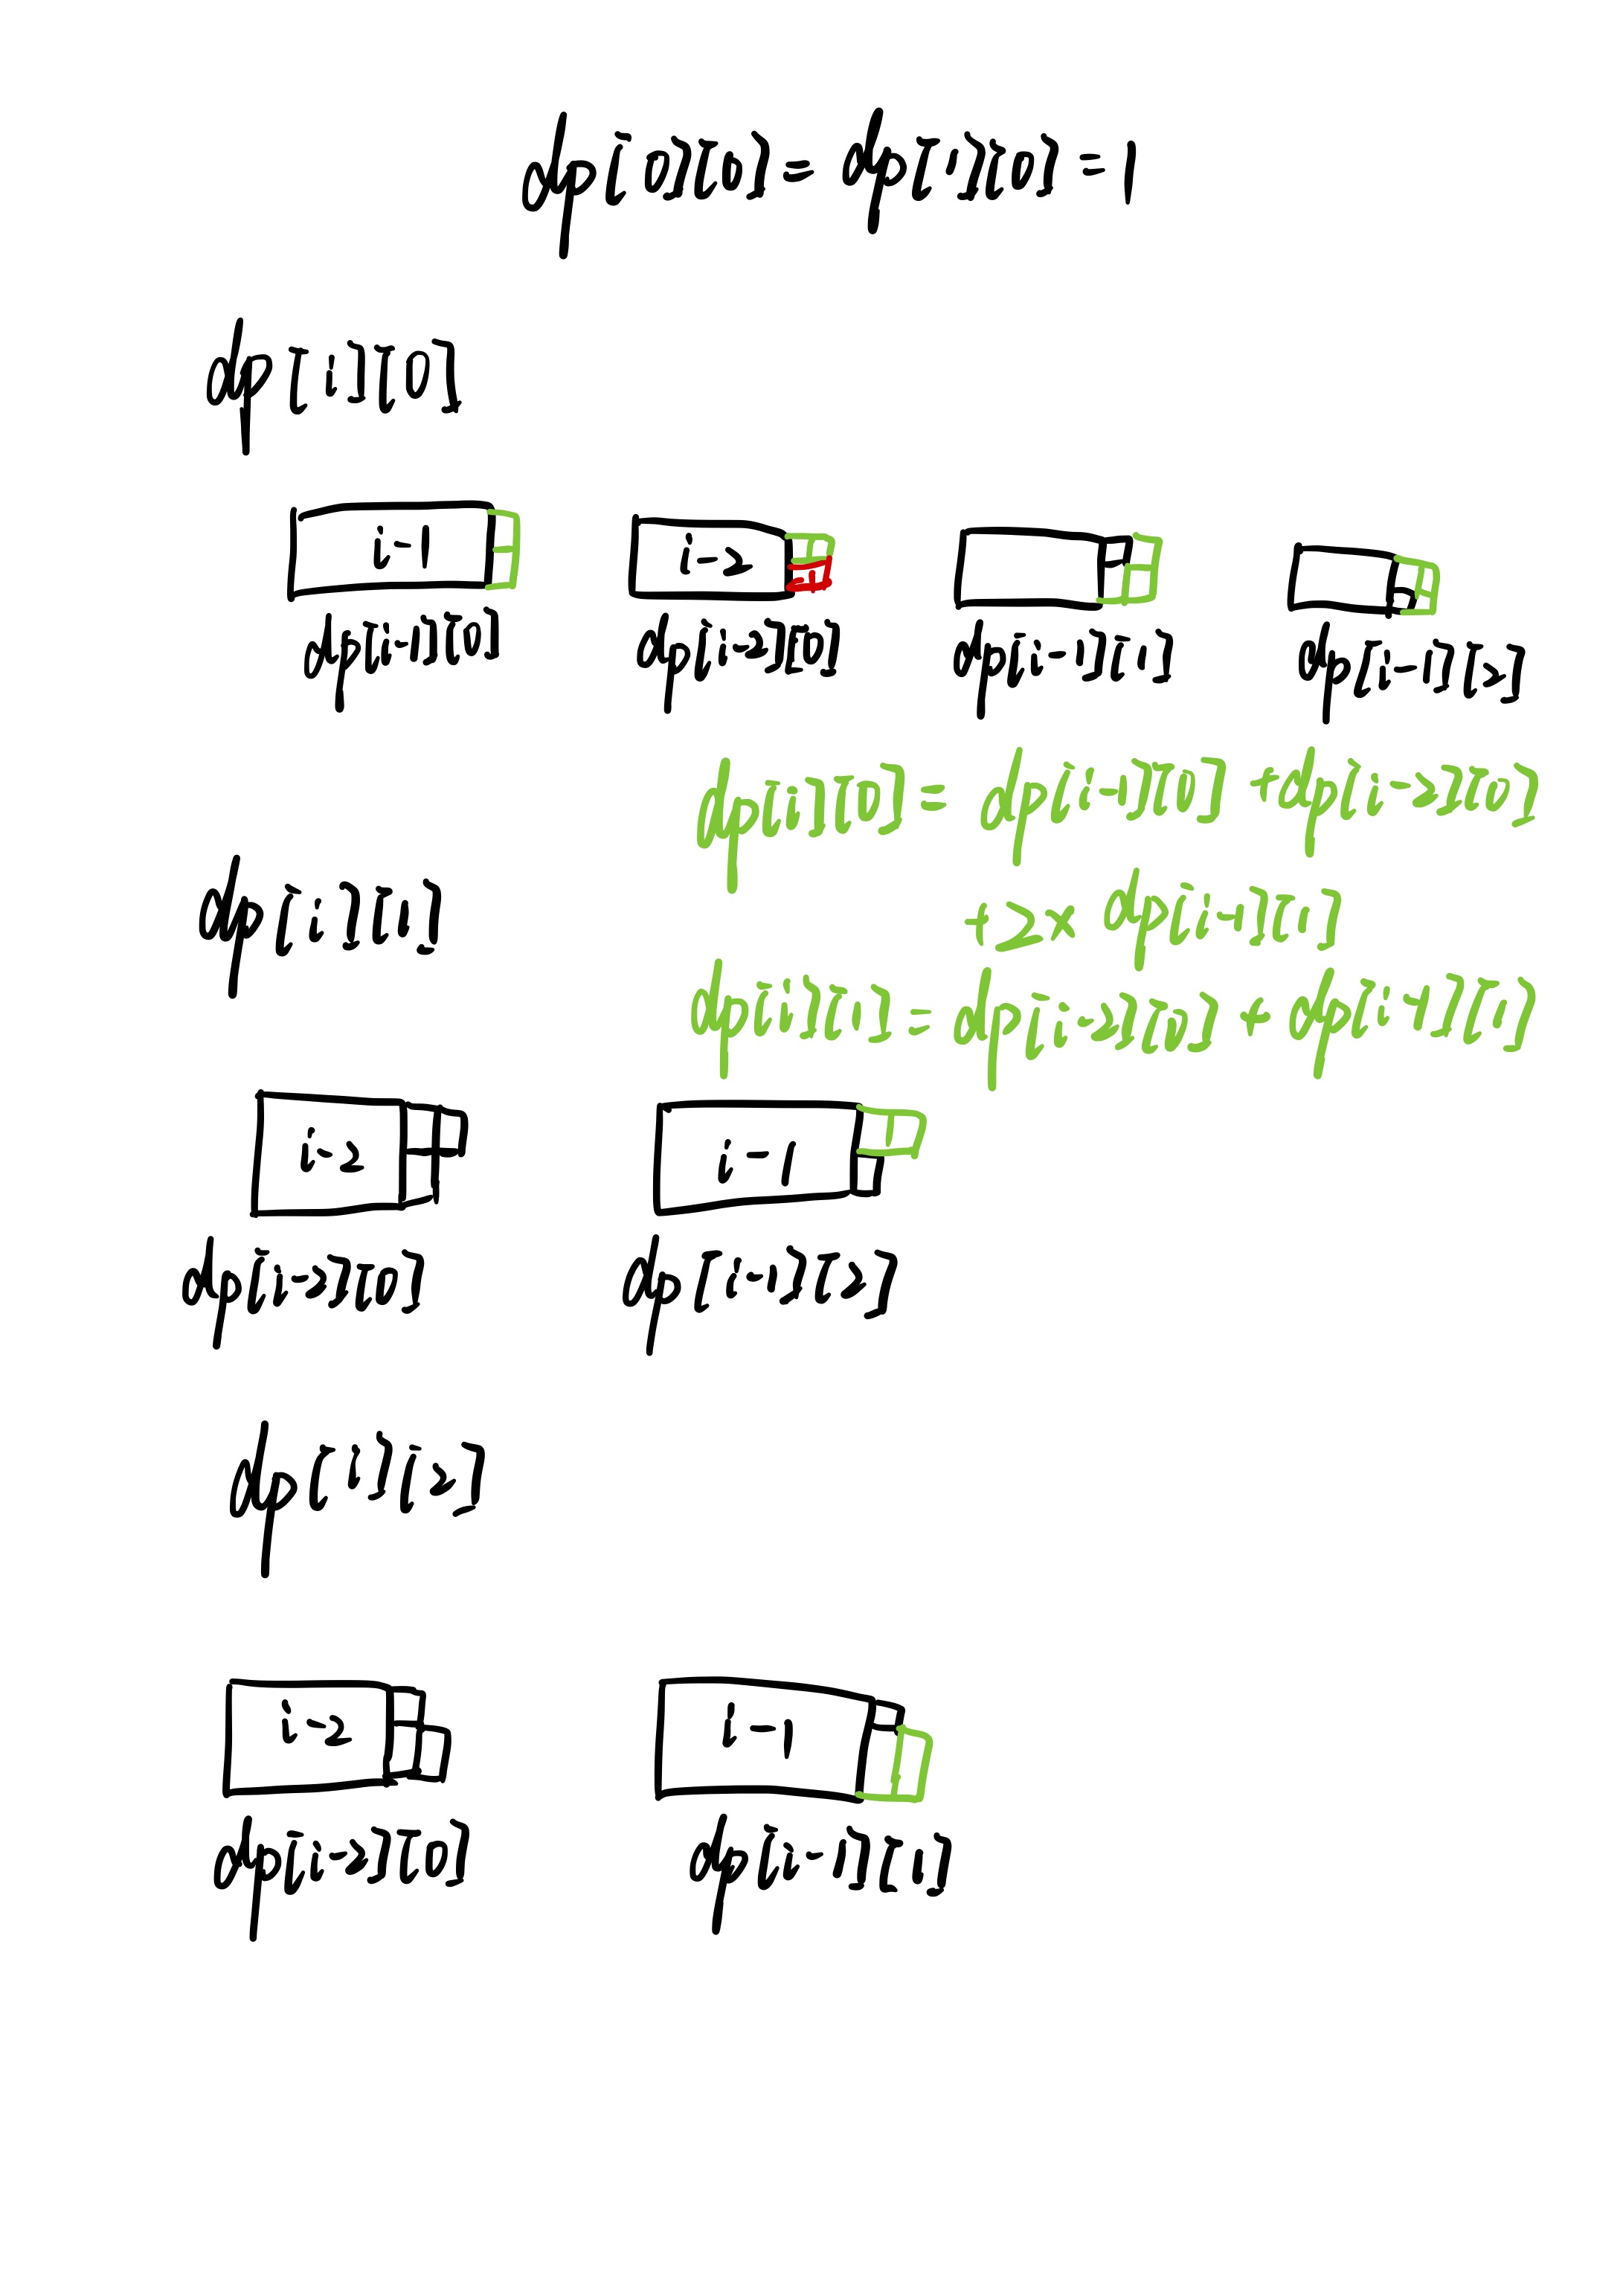 dp[0][0] = dp[1][0] = 1
dp[i][0]
i-1
i-2
dp[i-1][0]
dp[i-2][0]
dp[i-1][1]
dp[i-1][2]
dp[i][0] = dp[i-1][0] + dp[i-2][0]
+ 2 × dp[i-1][1]
dp[i][1]
dp[i][1] = dp[i-2][0] + dp[i-1][1]
i-2
i-1
dp[i-2][0]
dp[i-1][2]
dp[i][2]
i-2
i-1
dp[i-2][0]
dp[i-1][1]